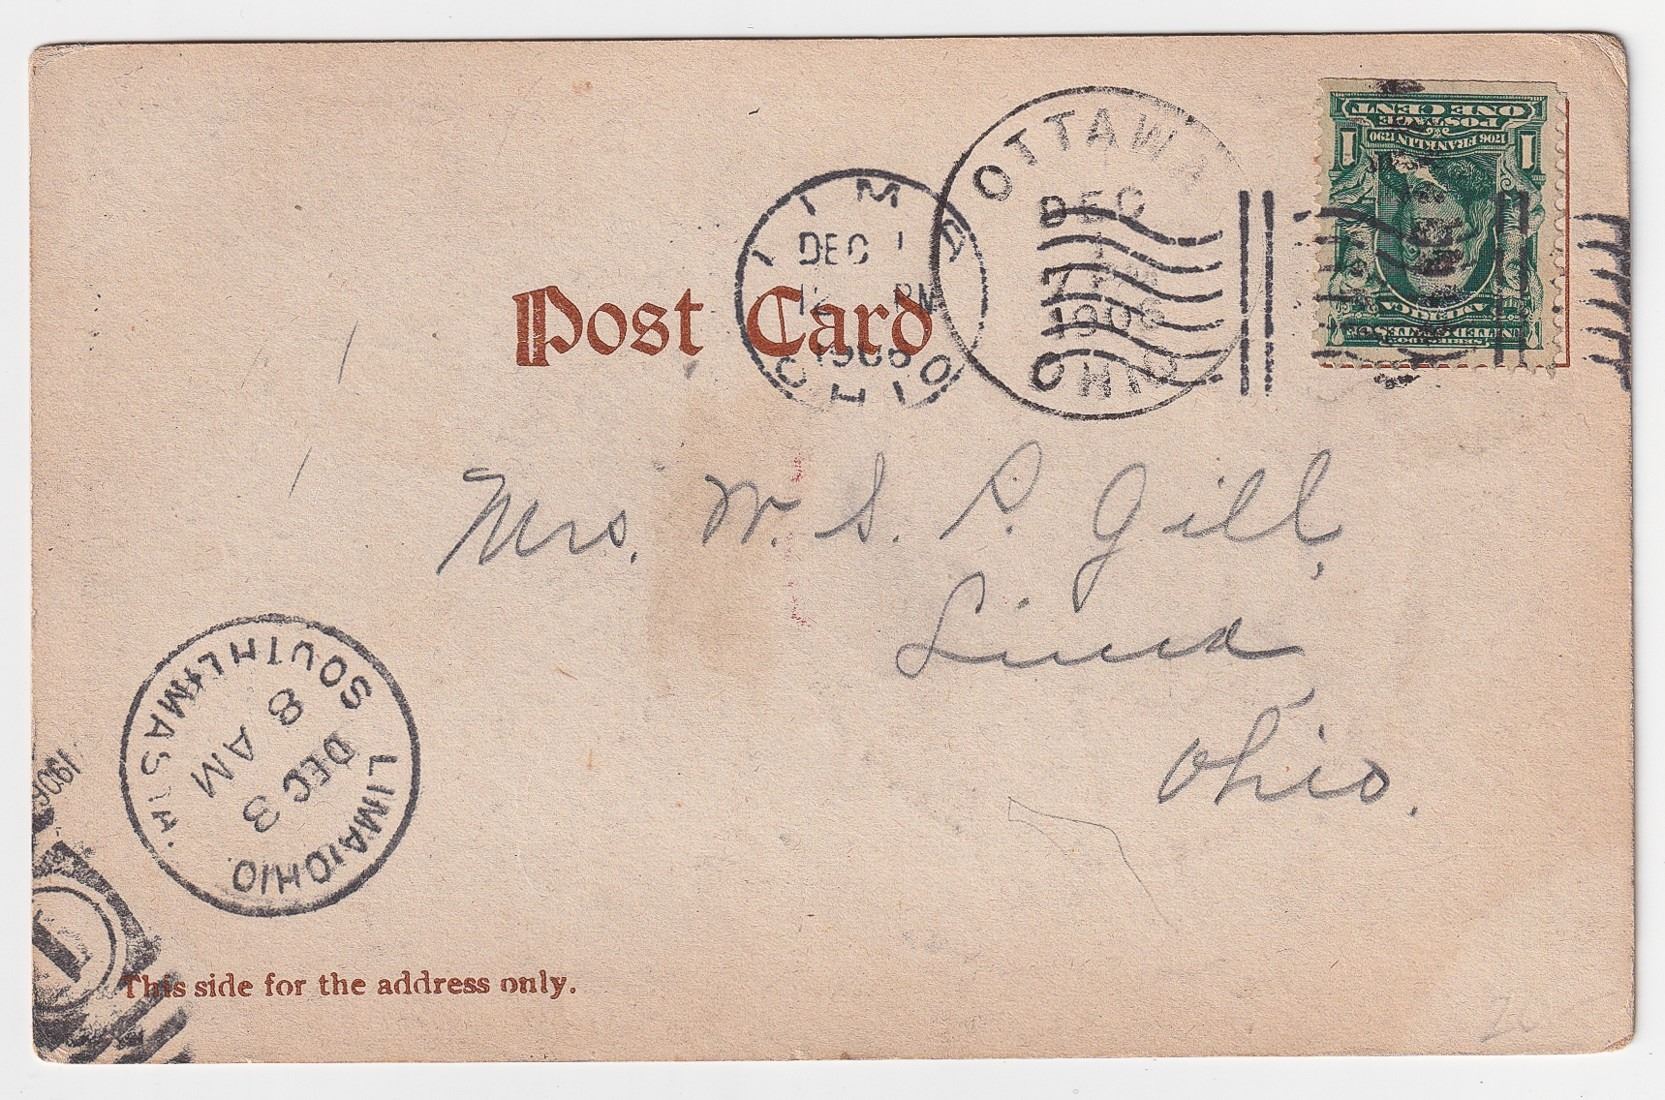 OTTAWA
DEC
1
1906
OHIO
LIMA
DEC 1
12 PM
1906
OHIO
ONE CENT
POSTAGE
1706 FRANKLIN 1790
1 1
SERIES 1902
UNITED STATES OF
AMERICA
Post Card
Mrs. W. S. P. Gill,
Lima,
Ohio.
SOUTH LIMA STA.
8 AM
DEC 3
LIMA, OHIO
1906
1
This side for the address only.